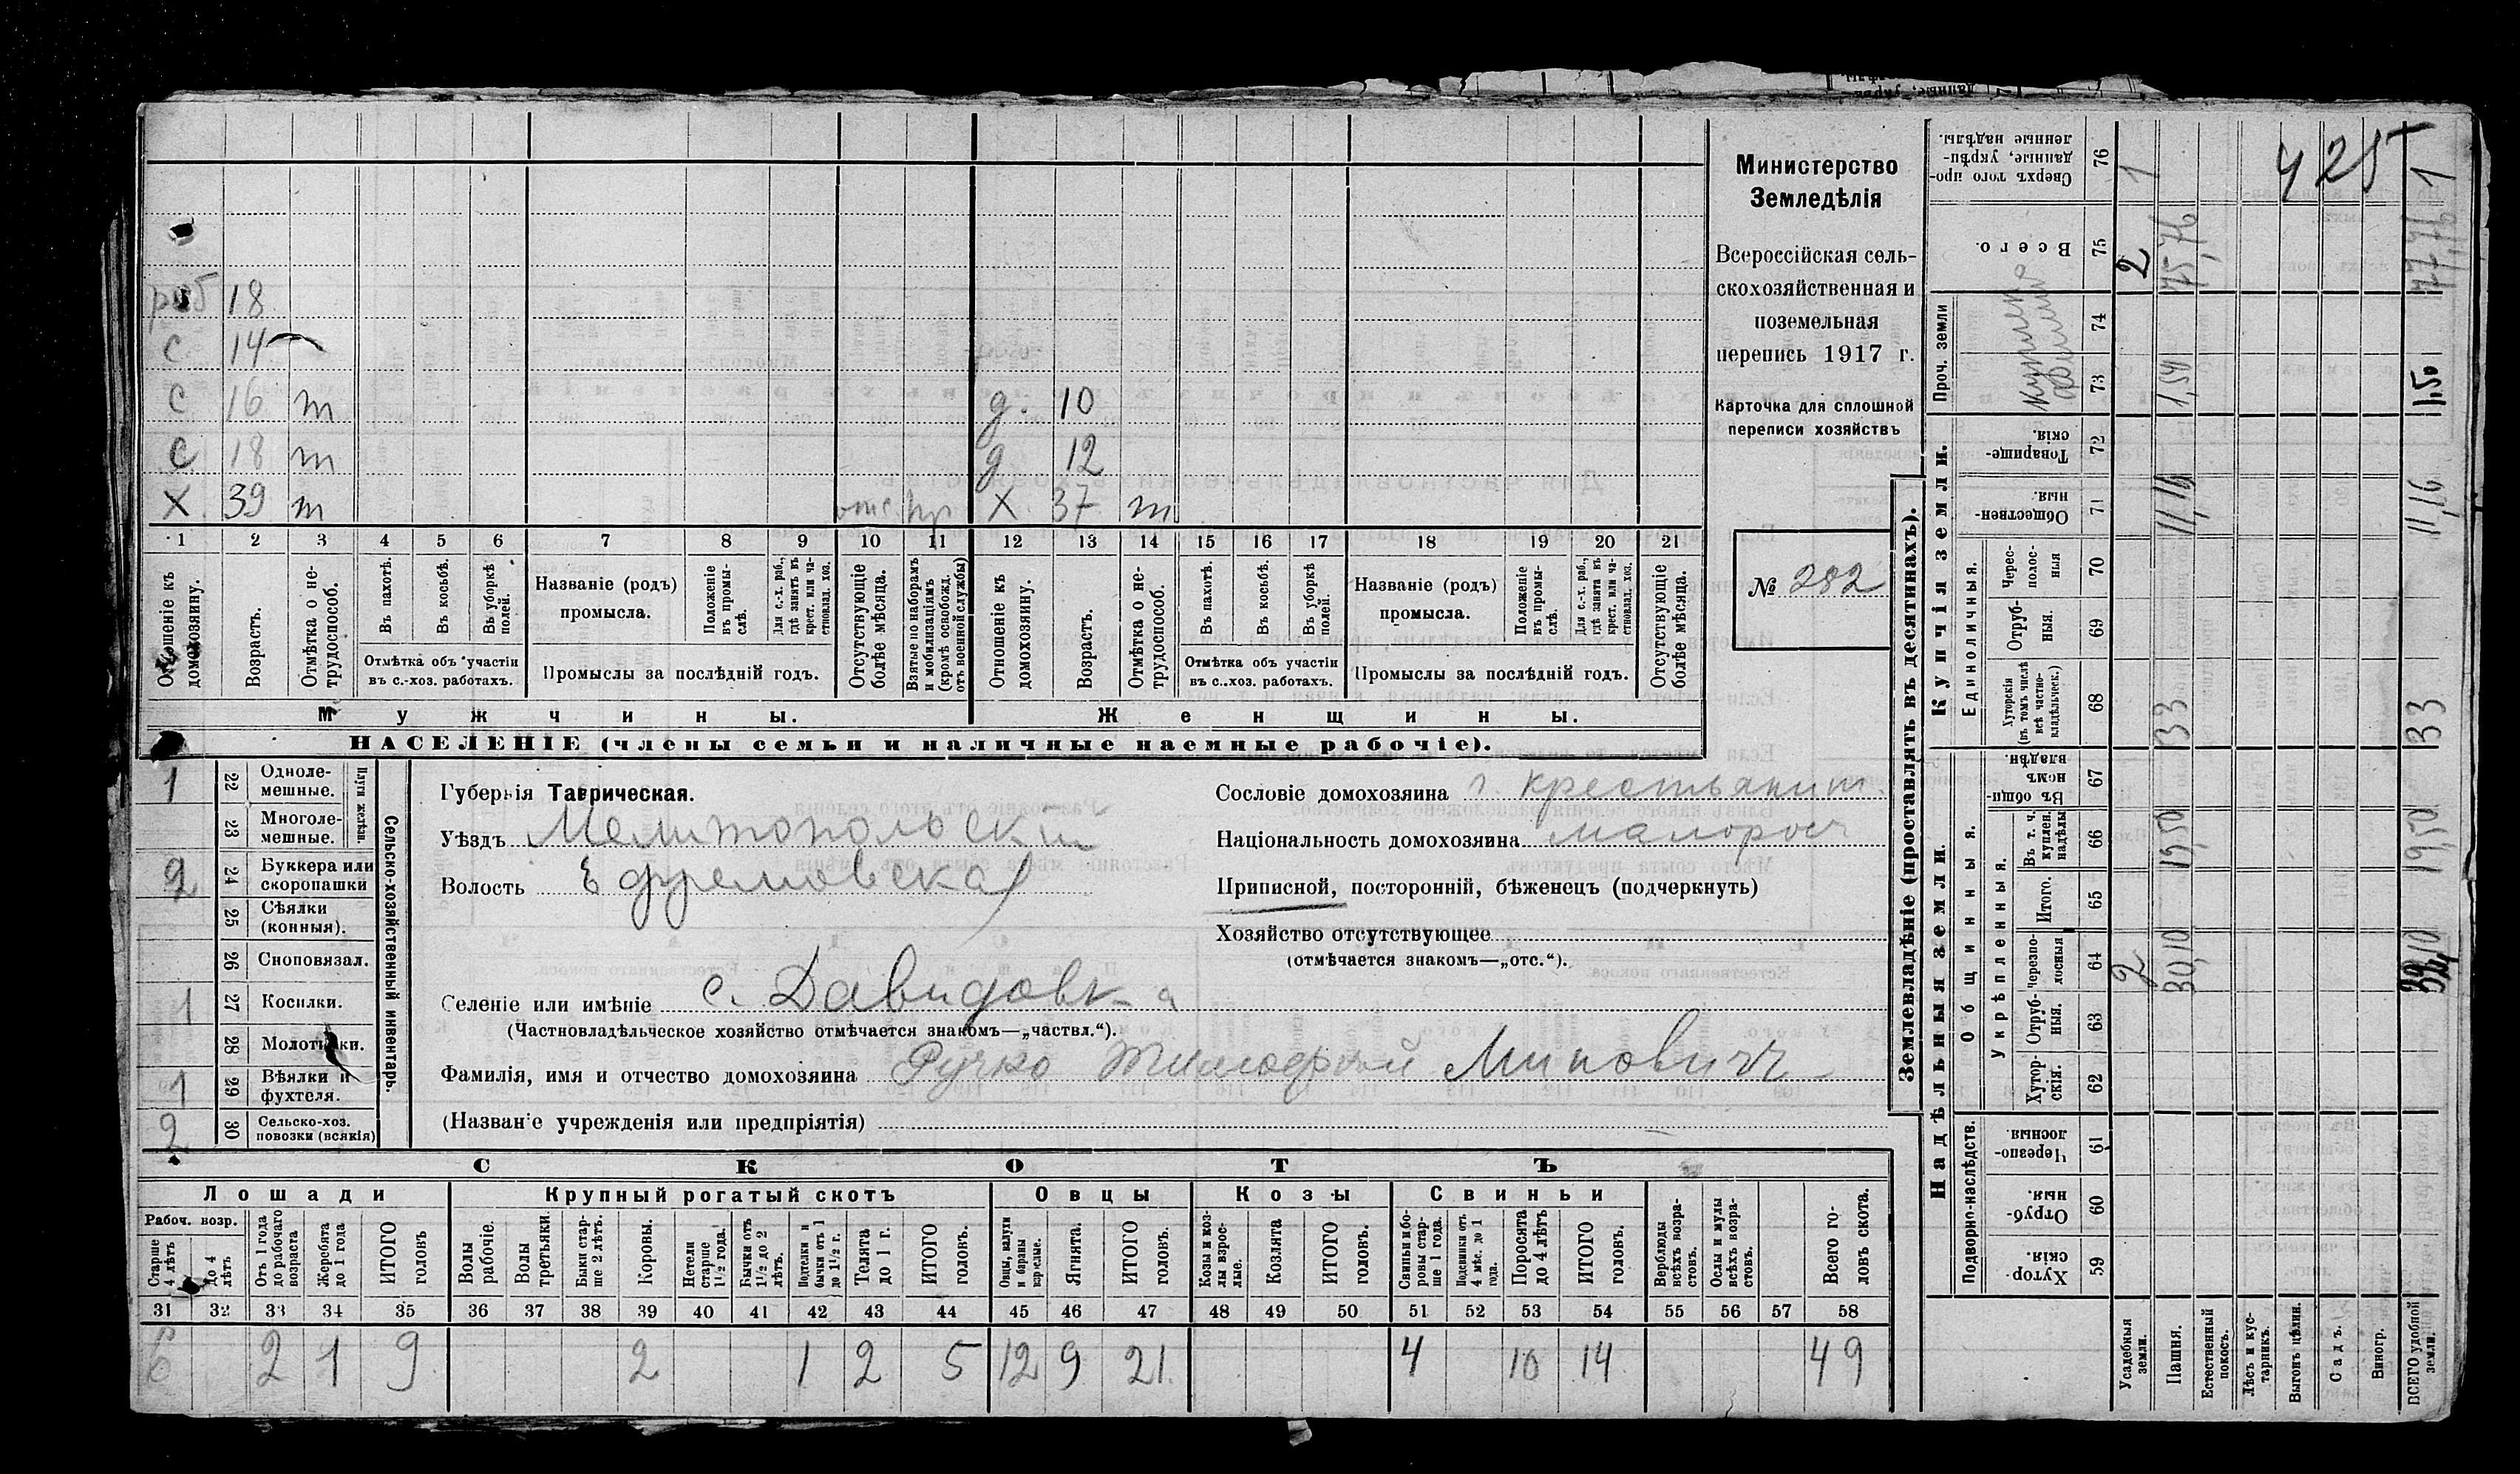 раб 18
с 14
с 16 т д. 10
с 18 т д 12
Х 39 т отс. Х 37 т
1 2 3 4 5 6 7 8 9 10 11 12 13 14 15 16 17 18 19 20 21
Отношеніе къ домохозяину.
Возрастъ.
Отмѣтка о не-трудоспособ.
Въ пахотѣ.
Въ косьбѣ.
Въ уборкѣ полей.
Отмѣтка объ участіи
въ с.-хоз. работахъ.
Названіе (родъ)
промысла.
Положеніе въ промы-слѣ.
Для с.-х. раб., гдѣ занятъ въ крест. или ча-стновлад. хоз.
Промыслы за послѣдній годъ.
Отсутствующіе болѣе мѣсяца.
Взятые по наборамъ и мобилизаціямъ (кромѣ освобожд. отъ военной службы)
Отношеніе къ домохозяину.
Возрастъ.
Отмѣтка о не-трудоспособ.
Въ пахотѣ.
Въ косьбѣ.
Въ уборкѣ полей.
Отмѣтка объ участіи
въ с.-хоз. работахъ.
Названіе (родъ)
промысла.
Положеніе въ промы-слѣ.
Для с.-х. раб., гдѣ занятъ въ крест. или ча-стновлад. хоз.
Промыслы за послѣдній годъ.
Отсутствующіе болѣе мѣсяца.
Мужчины. Женщины.
НАСЕЛЕНІЕ (члены семьи и наличные наемные рабочіе).
Министерство
Земледѣлія
Всероссійская сель-
скохозяйственная и
поземельная
перепись 1917 г.
Карточка для сплошной
переписи хозяйствъ
№ 282
Сельско-хозяйственный инвентарь.
1 22 Однолемешные.
23 Многолемешные.
2 24 Буккера или скоропашки
25 Сѣялки (конныя).
26 Сноповязал.
1 27 Косилки.
28 Молотилки.
1 29 Вѣялки и фухтеля.
2 30 Сельско-хоз. повозки (всякія)
Губернія Таврическая.
Уѣздъ Мелитопольскій
Волость Ефремовская
Сословіе домохозяина крестьянин.
Національность домохозяина малоросс
Приписной, посторонній, бѣженецъ (подчеркнуть)
Хозяйство отсутствующее
(отмѣчается знакомъ—„отс.“).
Селеніе или имѣніе с. Давидовка
(Частновладѣльческое хозяйство отмѣчается знакомъ—„частвл.“).
Фамилія, имя и отчество домохозяина Ручко Тимофѣй
(Названіе учрежденія или предпріятія)
СКОТЪ
Лошади Крупный рогатый скотъ Овцы Козы Свиньи
Рабоч. возр.
Старше 4 лѣтъ
До 4 лѣтъ
Отъ 1 года до рабочаго возраста
Жеребята до 1 года
ИТОГО головъ
Волы рабочіе.
Волы третьяки.
Быки старше 2 лѣтъ.
Коровы.
Нетели старше 1 1/2 года.
Бычки отъ 1 1/2 до 2 лѣтъ.
Подтелки и бычки отъ 1 до 1 1/2 г.
Телята до 1 г.
ИТОГО головъ.
Овцы, валухи и бараны взрослые.
Ягнята.
ИТОГО головъ.
Козы и козлы взрослые.
Козлята
ИТОГО головъ.
Свиньи и боровы старше 1 года.
Подсвинки отъ 4 мѣс. до 1 года.
Поросята до 4 лѣтъ
ИТОГО головъ.
Верблюды всѣхъ возрастовъ.
Ослы и мулы всѣхъ возрастовъ.
Всего головъ скота.
31 32 33 34 35 36 37 38 39 40 41 42 43 44 45 46 47 48 49 50 51 52 53 54 55 56 57 58
6 2 1 9 2 1 2 5 12 9 21 4 10 14 49
Землевладѣніе (проставлять въ десятинахъ).
Надѣльныя земли. Купчія земли. Проч. земли
Подворно-наслѣдств. Общинныя. Укрѣпленныя. Единоличныя.
Хуторскія. 59
Отрубныя. 60
Черезполосныя. 61
Хуторскія. 62
Отрубныя. 63
Черезполосныя 64
Итого. 65
Въ т. ч. куплен. надѣлы 66
Въ общинномъ владѣн. 67
Хуторскія (въ томъ числѣ всѣ частновладѣльческ.) 68
Отрубныя. 69
Черезполосныя 70
Общественныя. 71
Товарищескія. 72
73
74
Всего. 75
Сверхъ того проданные, укрѣпленные надѣлы. 76
Усадебныя земли. 2 2 1
Пашня. 30,10 19,50 33 11,16 1,50 75,76
Естественный покосъ.
Лѣсъ и кустарникъ.
Выгонъ цѣлин.
Садъ.
Виногр.
ВСЕГО удобной земли. 32,10 19,50 33 11,16 1,50 77,76 1
425